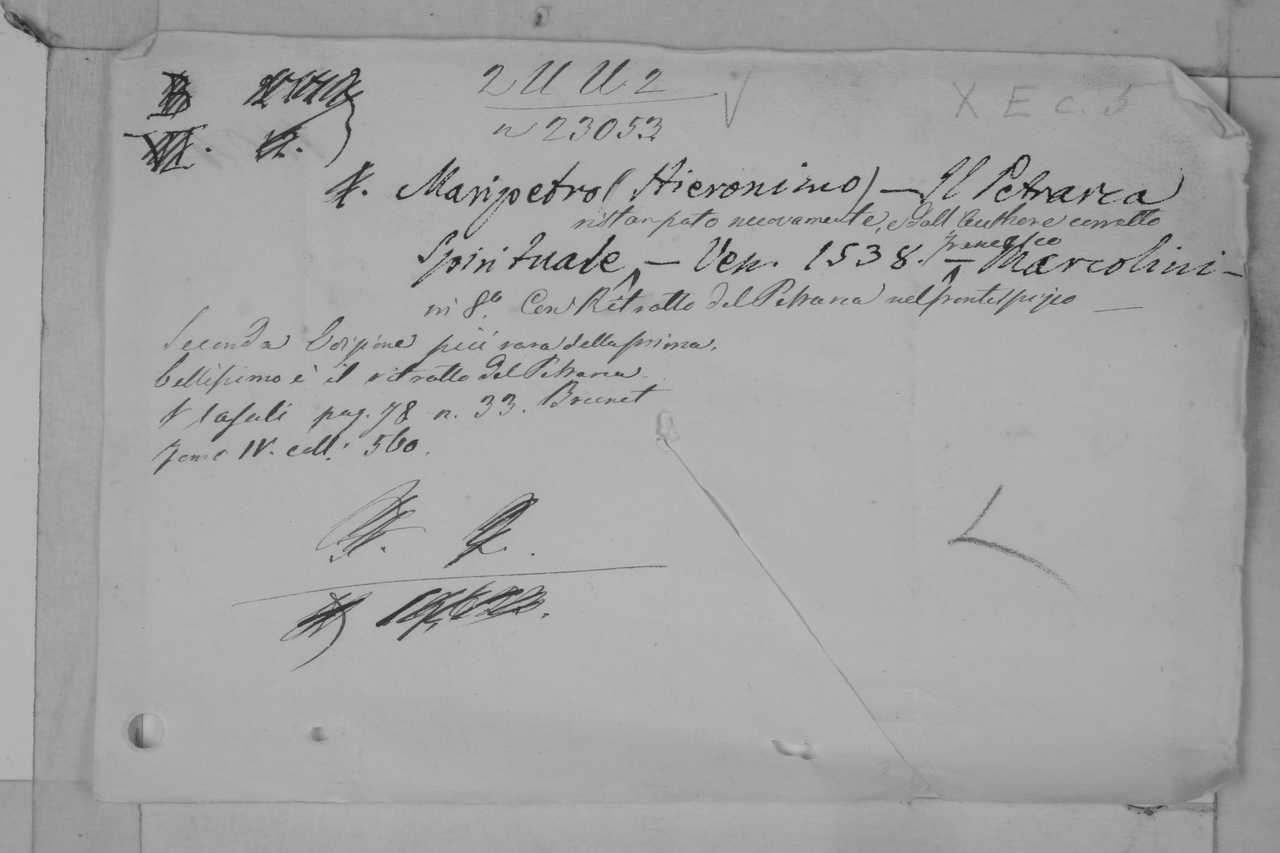 2 U U 2
n 23053
X E c. 5
Maripetro (Hieronimo) — Il Petrarca
ristanpato nuovamente, e dall'Authore corretto
Spirituale — Ven. 1538. — Marcolini —
Francesco
in 8.º Con Ritratto del Petrarca nel frontespizio —
Seconda Edizione più rara della prima.
bellissimo è il ritratto del Petrarca.
V Casali pag. 78 n. 33. Brunet
Tomo IV. coll. 560.